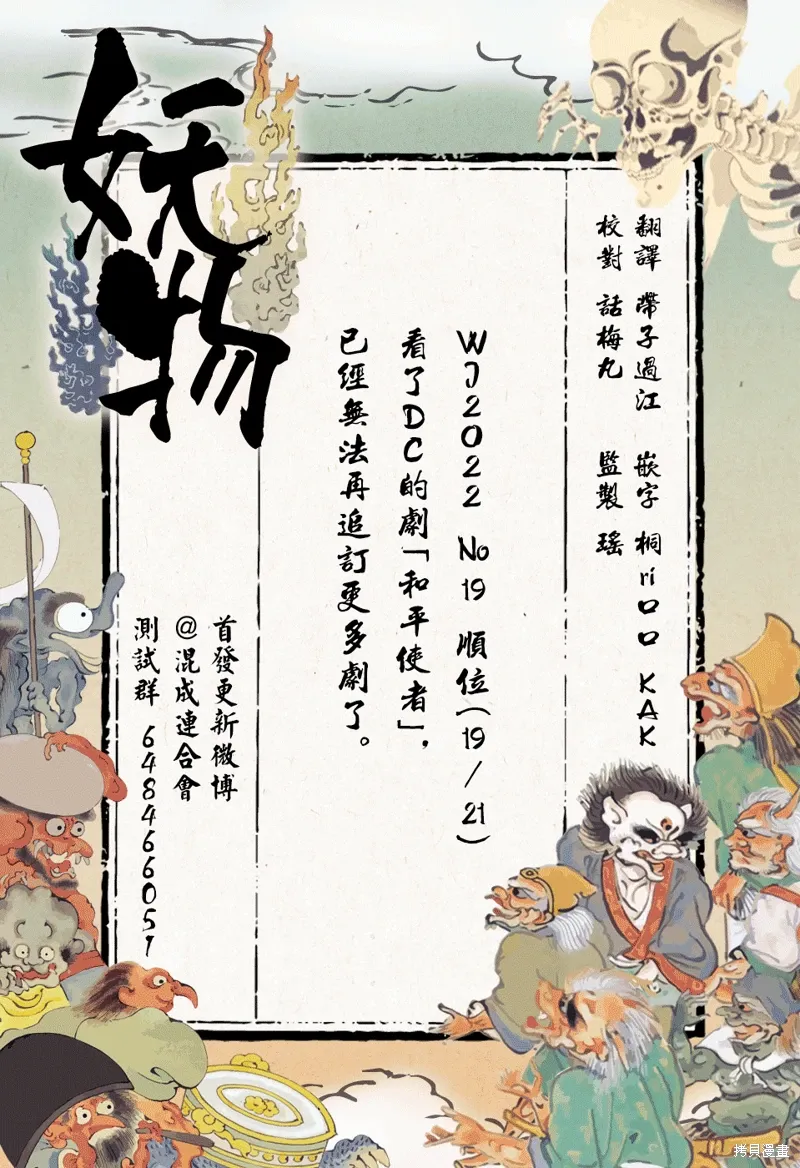 妖物
翻譯 帶子過江 嵌字 桐ríロロ KAK
校對 話梅丸 監製 瑤
WJ2022 No19 順位(19/21)
看了DC的劇「和平使者」,
已經無法再追訂更多劇了。
首發更新微博
@混成連合會
測試群 648466051
拷貝漫畫